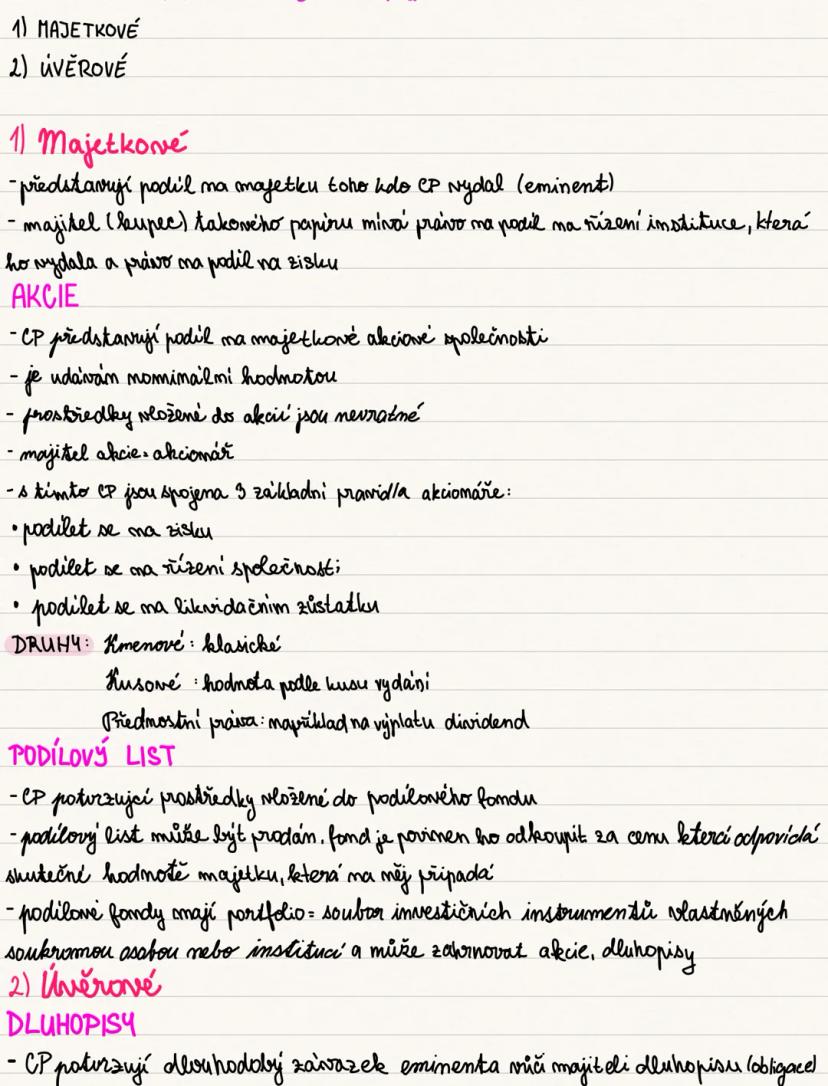 1) MAJETKOVÉ
2) ÚVĚROVÉ
1) Majetkové
- představují podíl na majetku toho kdo CP vydal (eminent)
- majitel (kupec) takového papíru mívá právo na podíl na řízení instituce, která
ho vydala a právo na podíl na zisku
AKCIE
- CP představují podíl na majetkové akciové společnosti
- je udáván nominální hodnotou
- prostředky vložené do akcií jsou nevratné
- majitel akcie = akcionář
- s tímto CP jsou spojena 3 základní pravidla akcionáře:
• podílet se na zisku
• podílet se na řízení společnosti
• podílet se na likvidačním zůstatku
DRUHY: Kmenové: klasické
Kusové : hodnota podle kusu vydání
Přednostní práva: například na výplatu dividend
PODÍLOVÝ LIST
- CP potvrzujcí prostředky vložené do podílového fondu
- podílový list může být prodán, fond je povinen ho odkoupit za cenu která odpovídá
skutečné hodnotě majetku, která na něj připadá
- podílové fondy mají portfolio = soubor investičních instrumentů vlastněných
soukromou osobou nebo institucí a může zahrnovat akcie, dluhopisy
2) Úvěrové
DLUHOPISY
- CP potvrzují dlouhodobý závazek eminenta vůči majiteli dluhopisu (obligace)